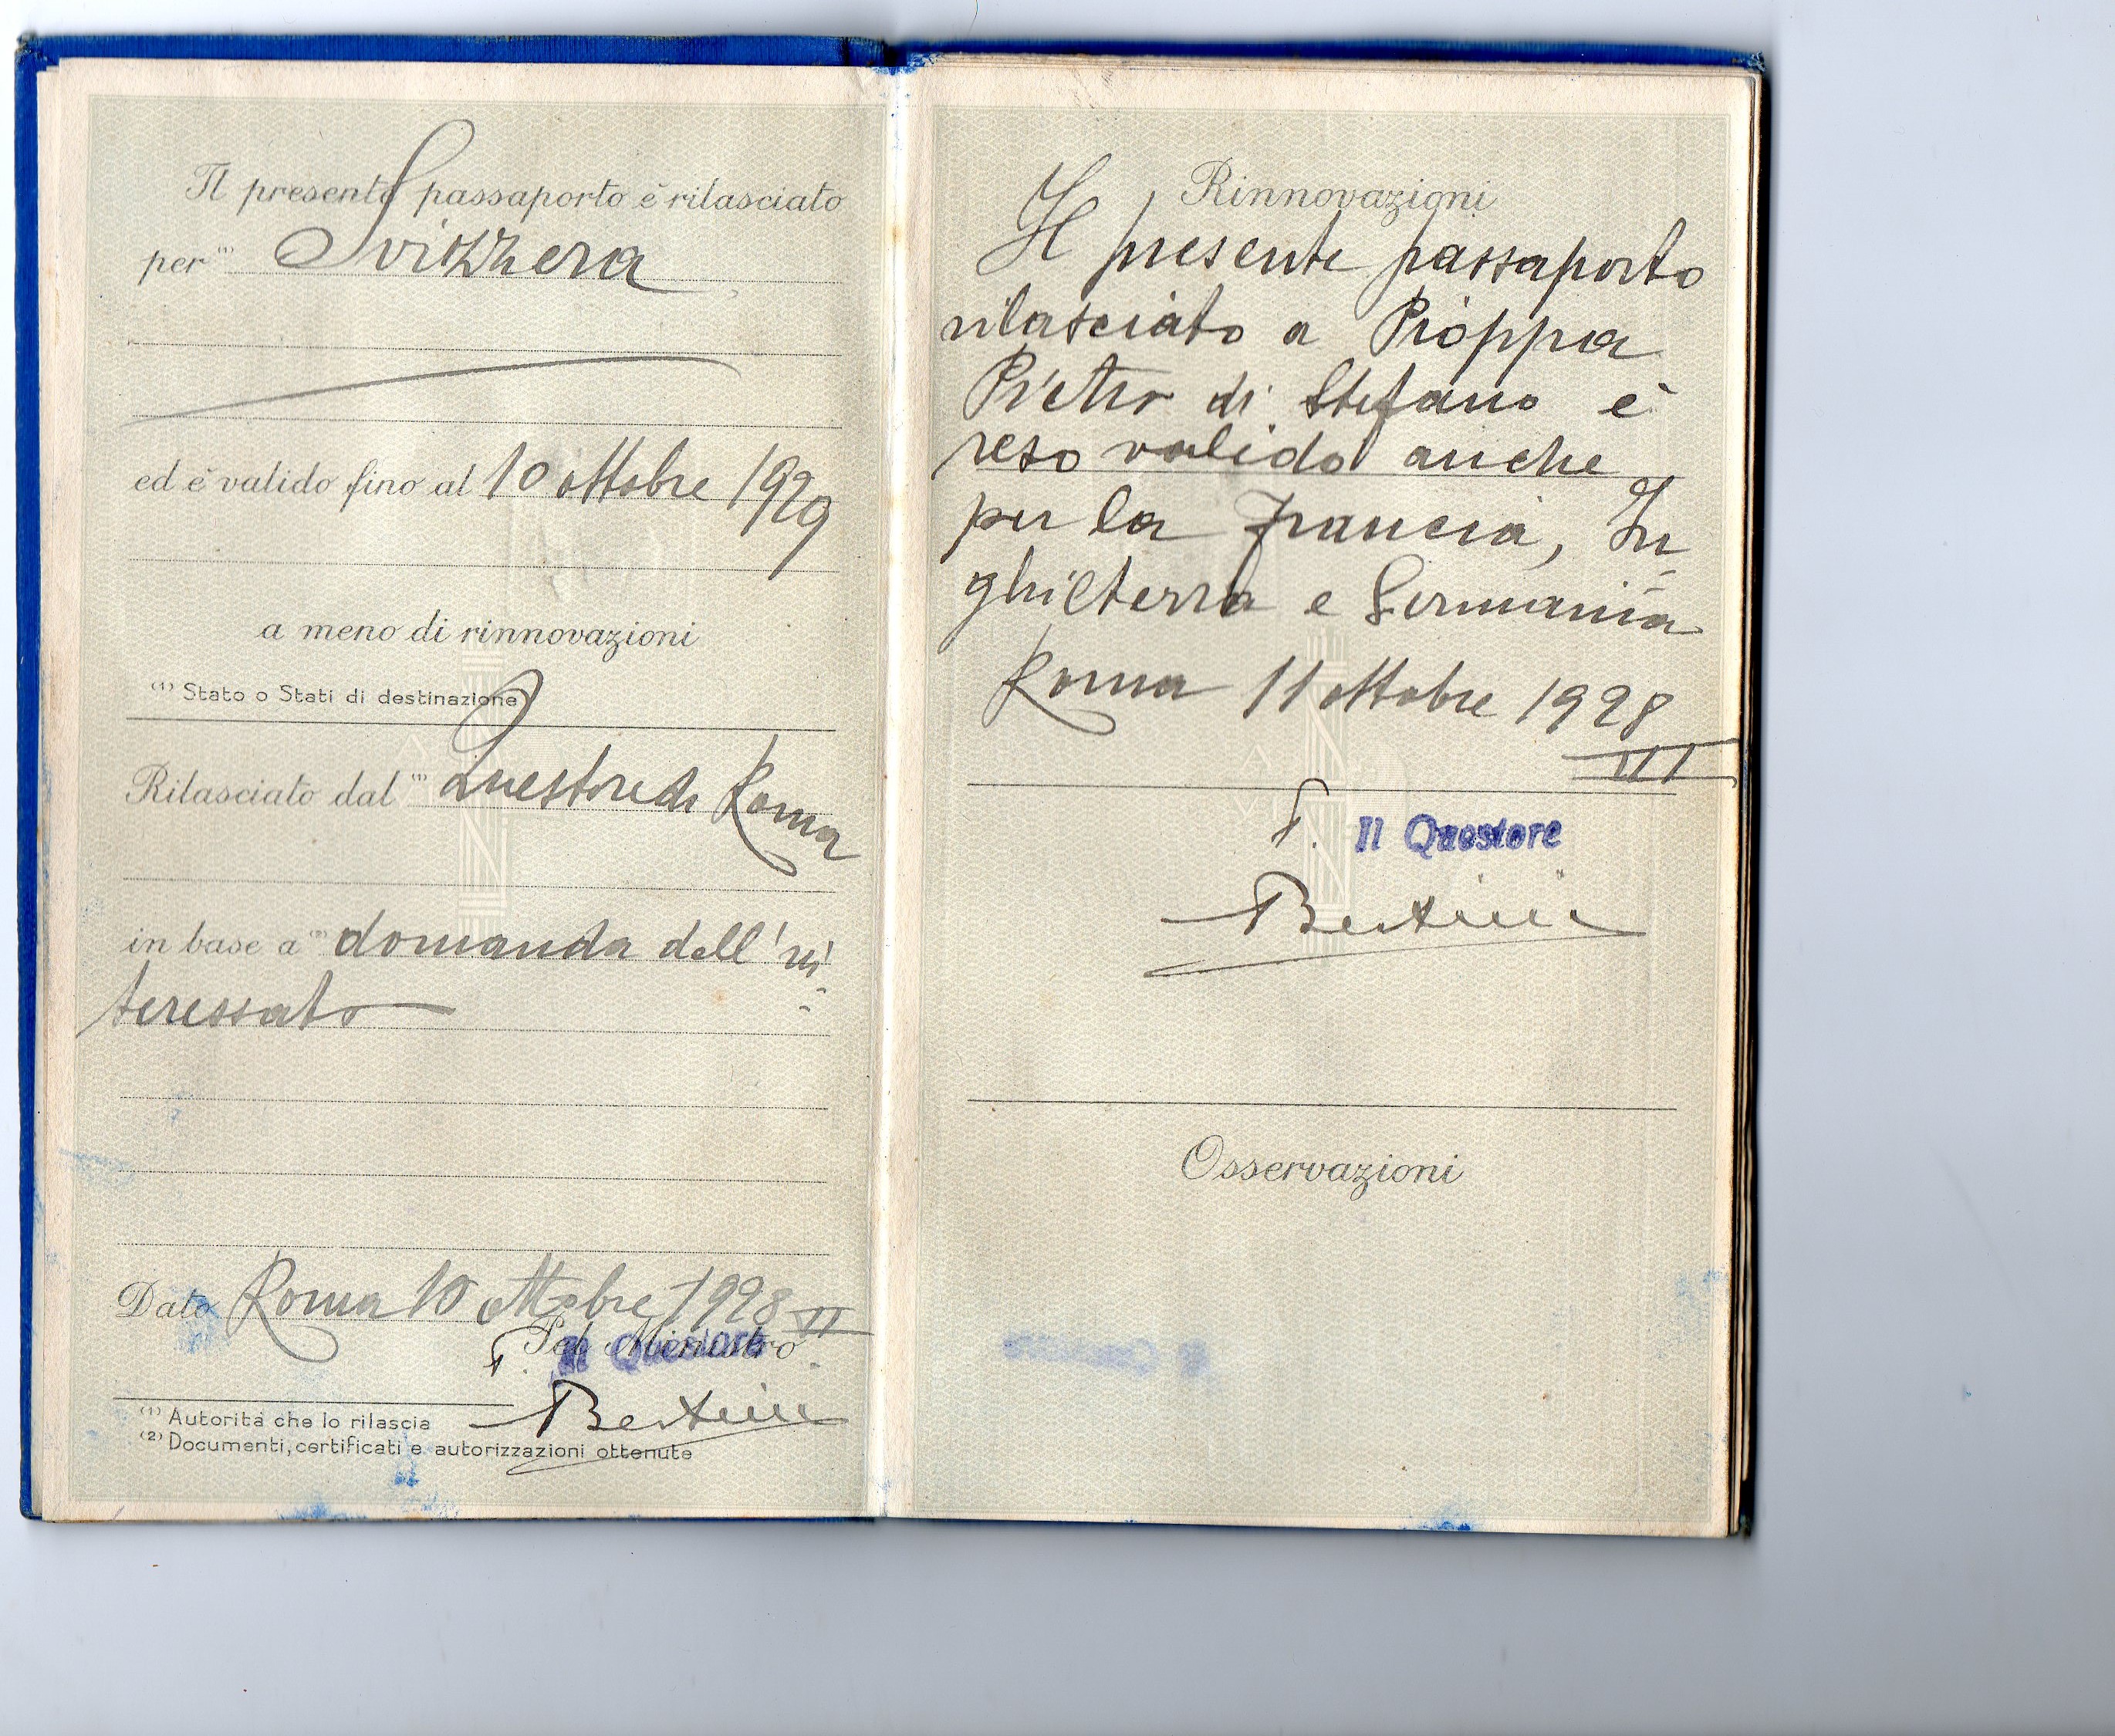 Il presente passaporto è rilasciato
per (1) Svizzera
ed è valido fino al 10 ottobre 1929
a meno di rinnovazioni
(1) Stato o Stati di destinazione
Rilasciato dal (1) Questore di Roma
in base a (2) domanda dell'in=
teressato
Dato Roma 10 ottobre 1928 VI
Pel Ministro
F. Il Questore
Bertini
(1) Autorità che lo rilascia
(2) Documenti, certificati e autorizzazioni ottenute
Rinnovazioni
Il presente passaporto
rilasciato a Pioppa
Pietro di Stefano è
reso valido anche
per la Francia, In=
ghilterra e Germania
Roma 11 ottobre 1928
VI
F. Il Questore
Bertini
Osservazioni